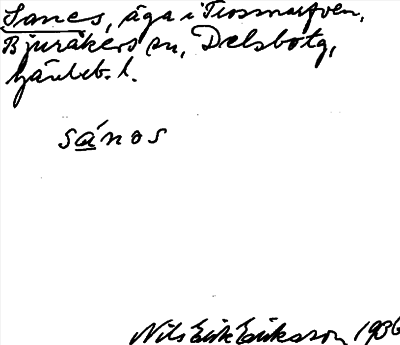 Sanes, äga i Trosmarfven,
Bjuråkers sn, Delsbo tg,
Gävleb. l.
sános
Nils Erik Eriksson 1936